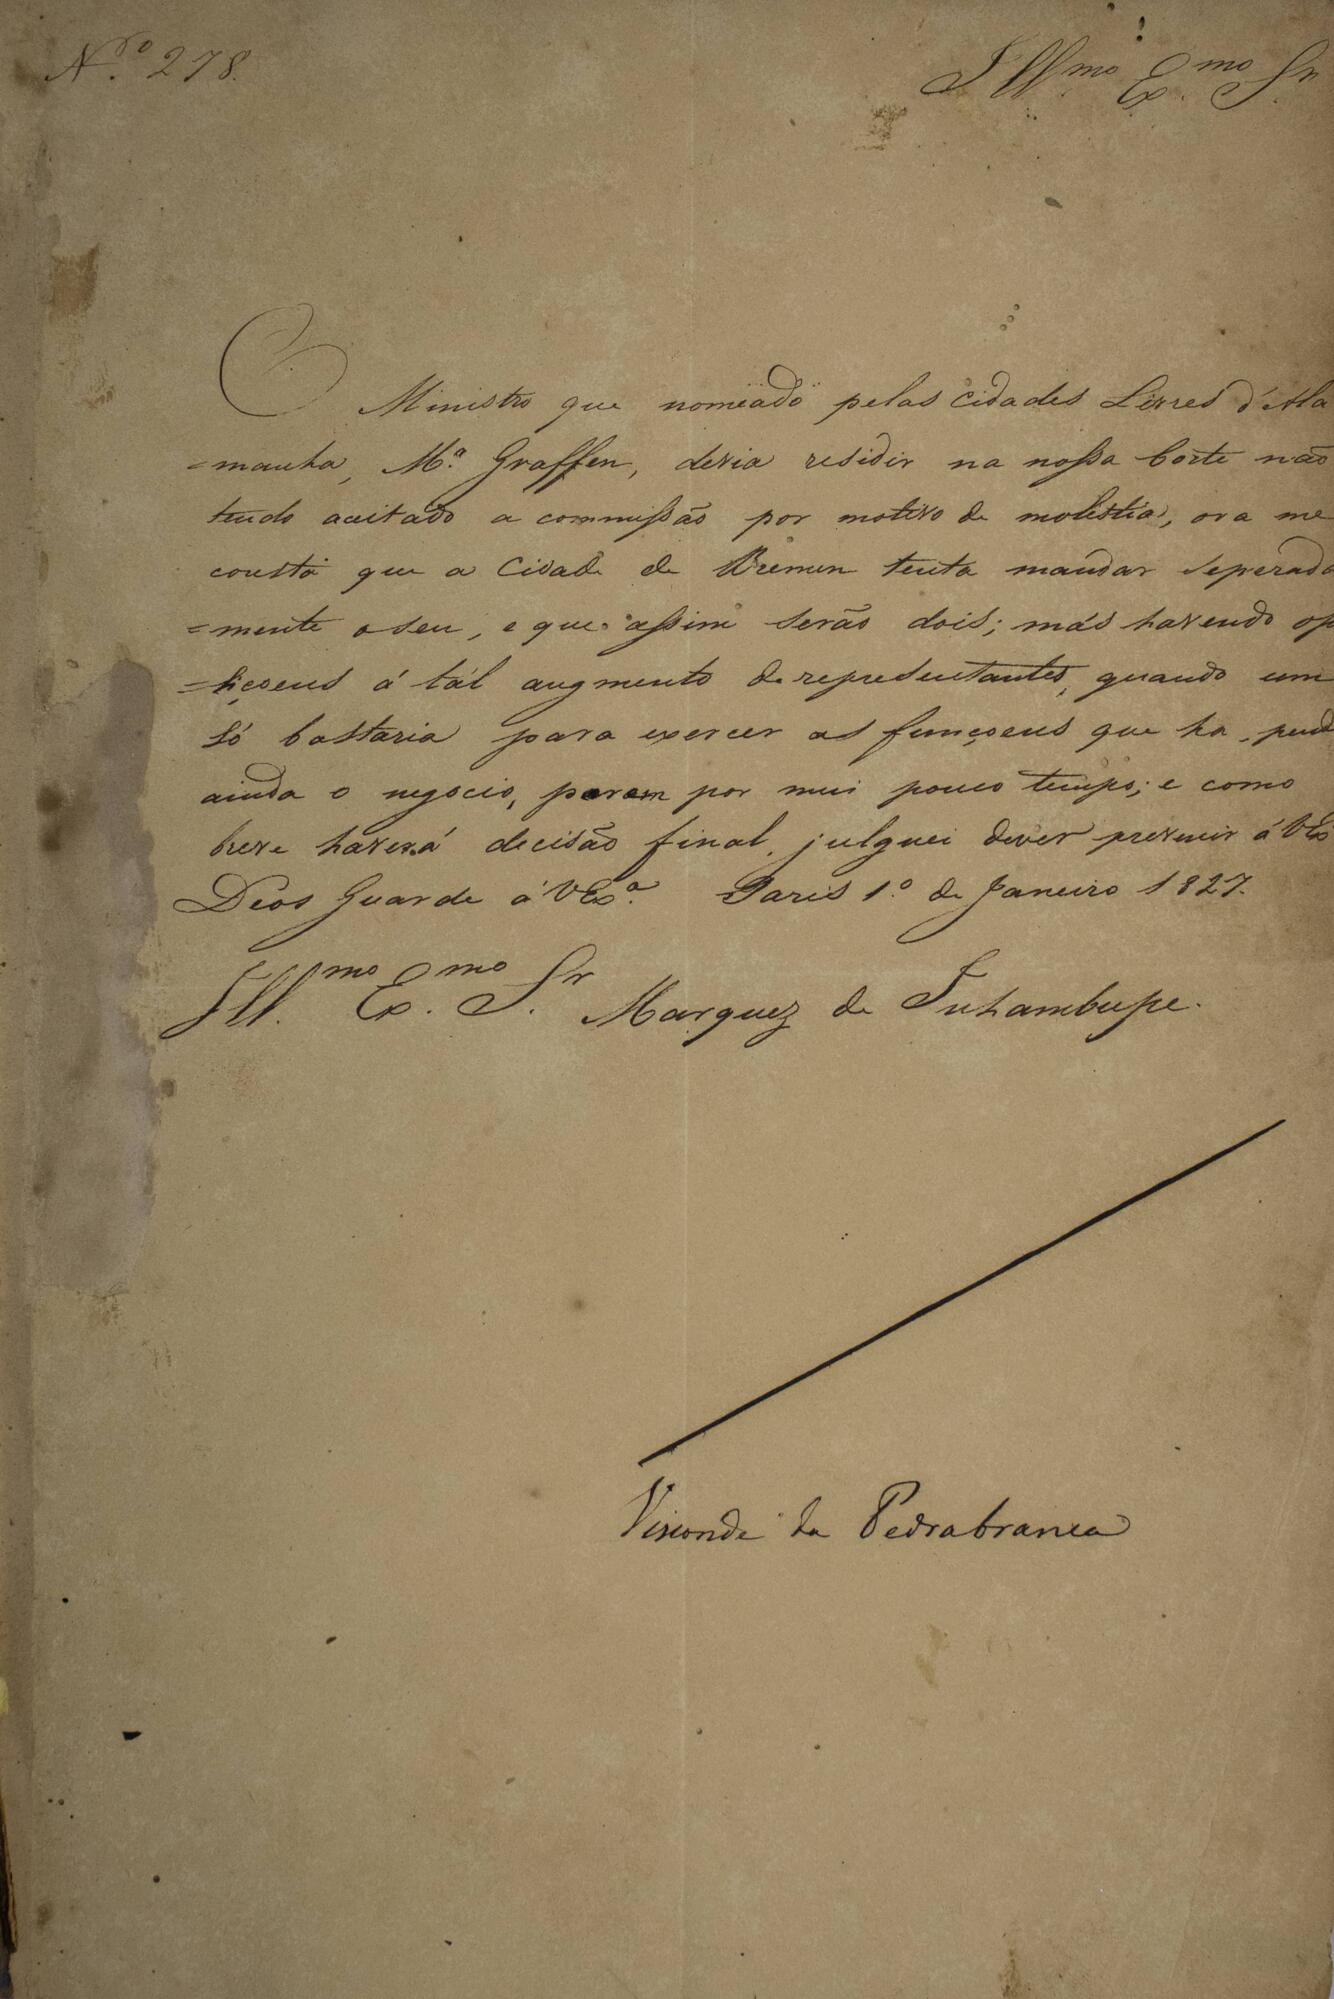 N.ro 278.
Ill.mo Ex.mo Sr.
O Ministro que nomeado pelas Cidades Livres d'Ala
=manha, Mr. Graffen, devia residir na nossa Corte não
tendo aceitado a commissão por motivo de molestia, ora me
consta que a Cidade de Bremen tenta mandar seperada
=mente o seu, e que assim serão dois; más havendo op
=siçoens á tál augmento de representantes, quando um
só bastaria para exercer as funçoens que ha, pend
ainda o negocio, porem por mui pouco tempo; e como
breve haverá decisão final, julguei dever prevenir á VEx
Deos Guarde á VEx.a Paris 1.º de Janeiro 1827.
Ill.mo Ex.mo Sr. Marquez de Inhambupe.
Visconde da Pedrabranca